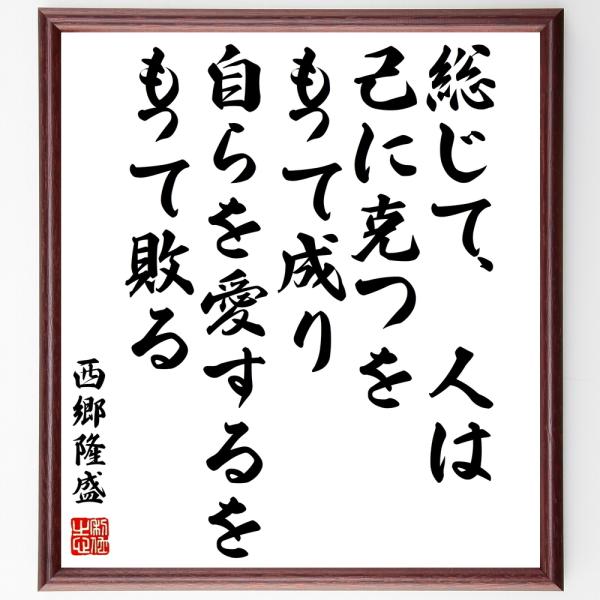 総じて、人は
己に克つを
もって成り
自らを愛するを
もって敗る
西郷隆盛